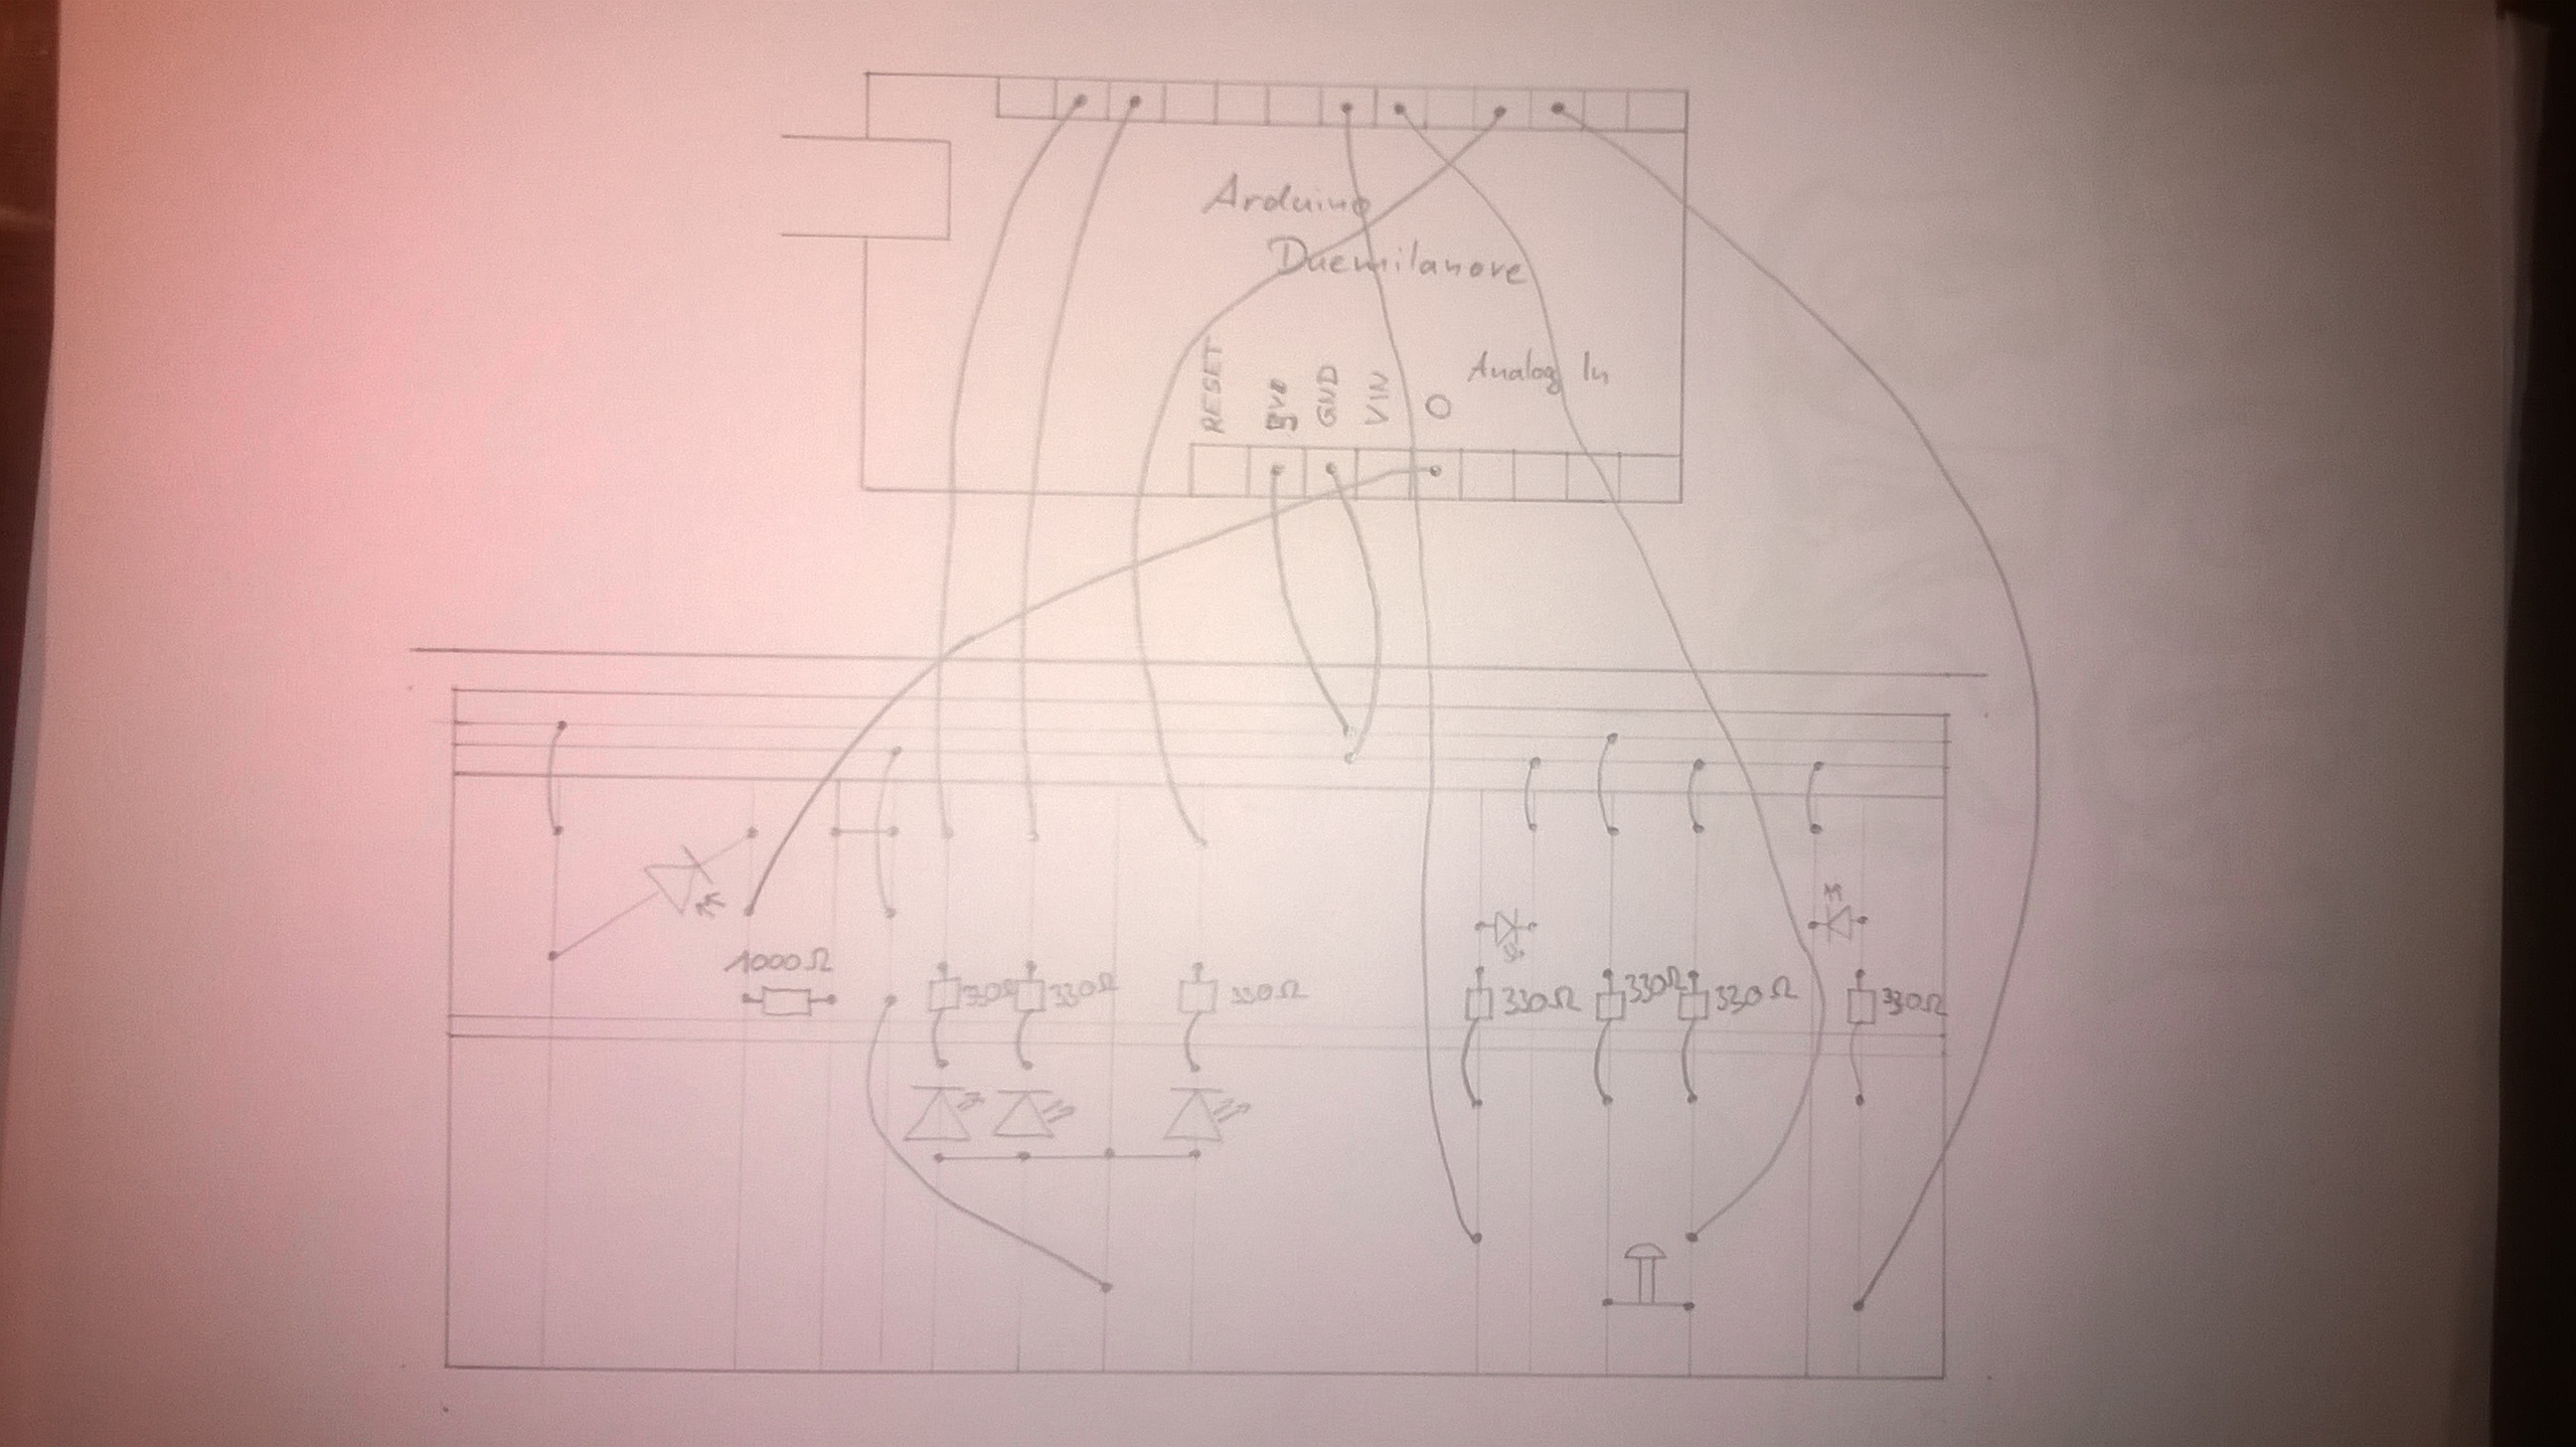 Arduino
Duemilanove
RESET
GND
VIN
0
Analog In
1000Ω
330Ω
330Ω
330Ω
330Ω
330Ω
330Ω
330Ω